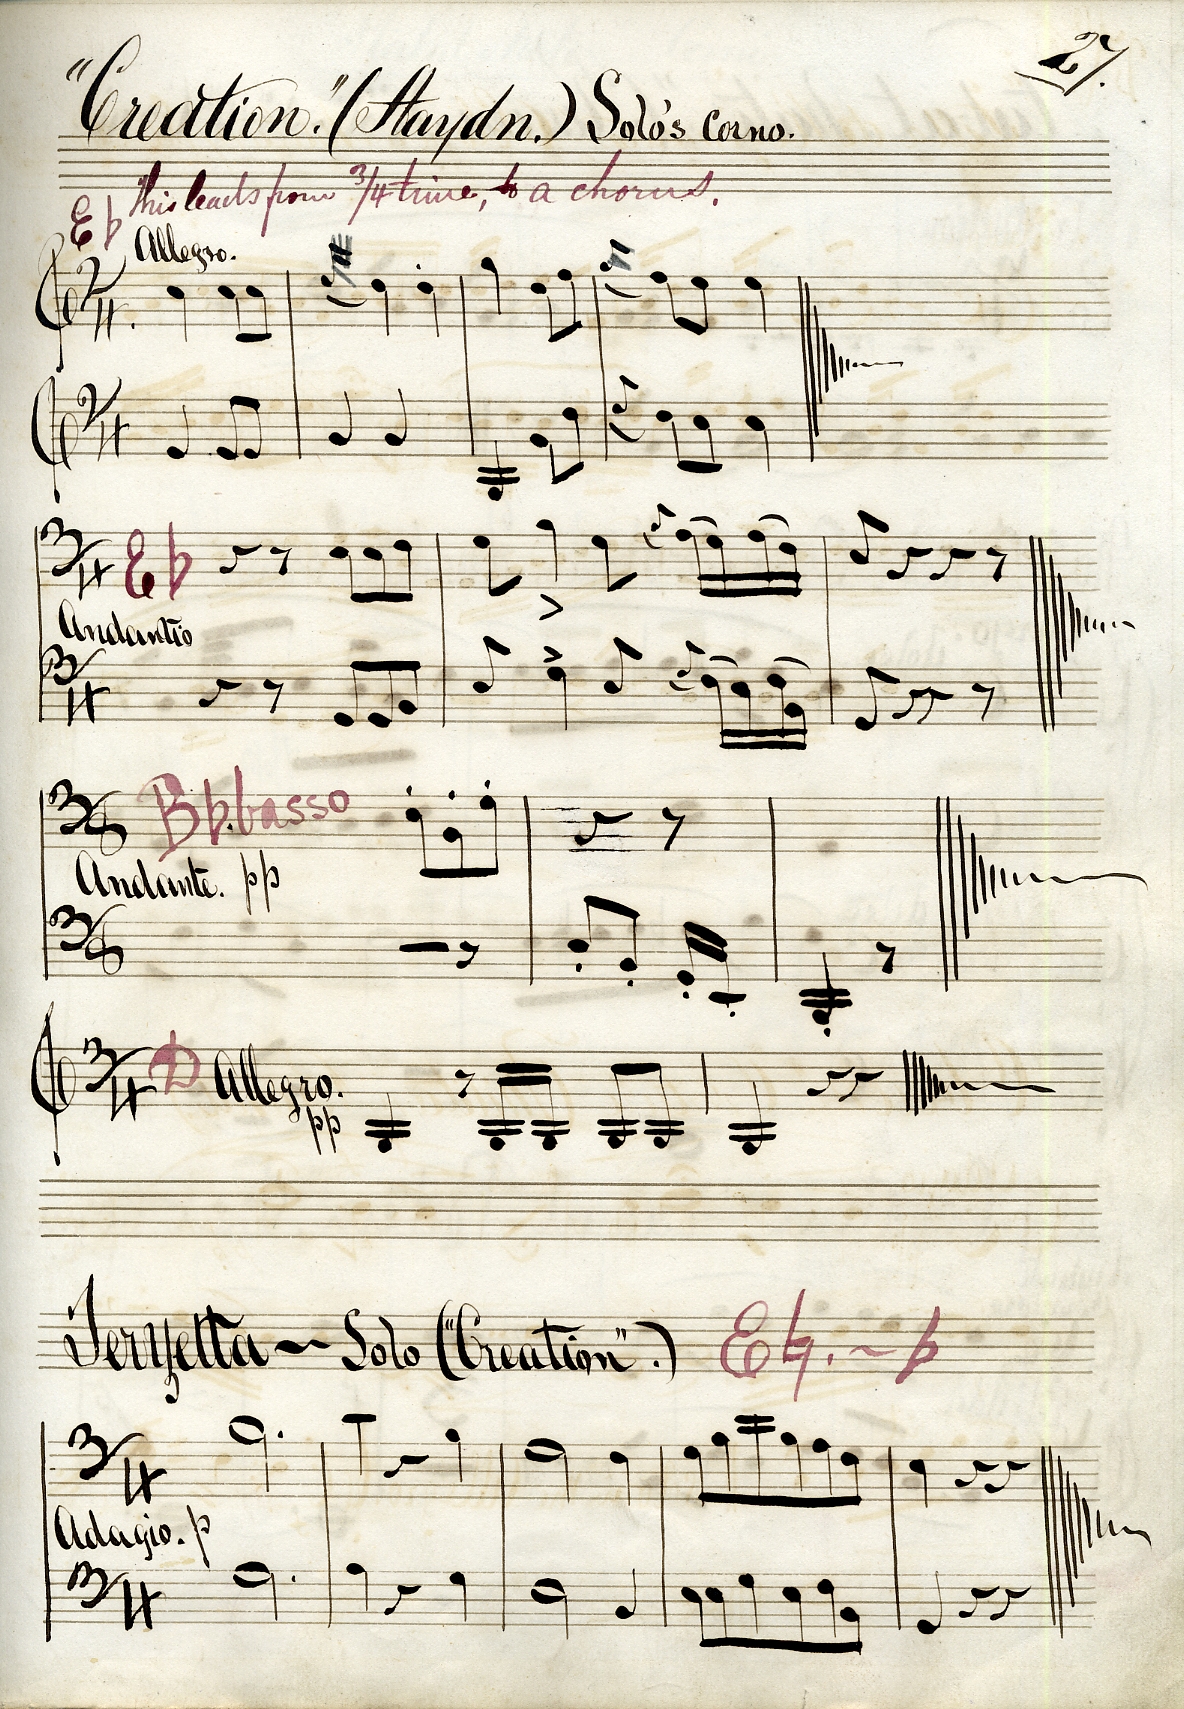 27.
"Creation." (Haydn.) Solo's Corno.
This leads from 3/4 time, to a chorus.
E♭
Allegro.
2/4.
2/4
3/4 E♭
Andantio
3/4
6/8 B♭.basso
Andante. pp
6/8
3/4 D Allegro.
pp
Terzetta ~ Solo ("Creation".) E♮. ~ p
3/4
Adagio. p
3/4